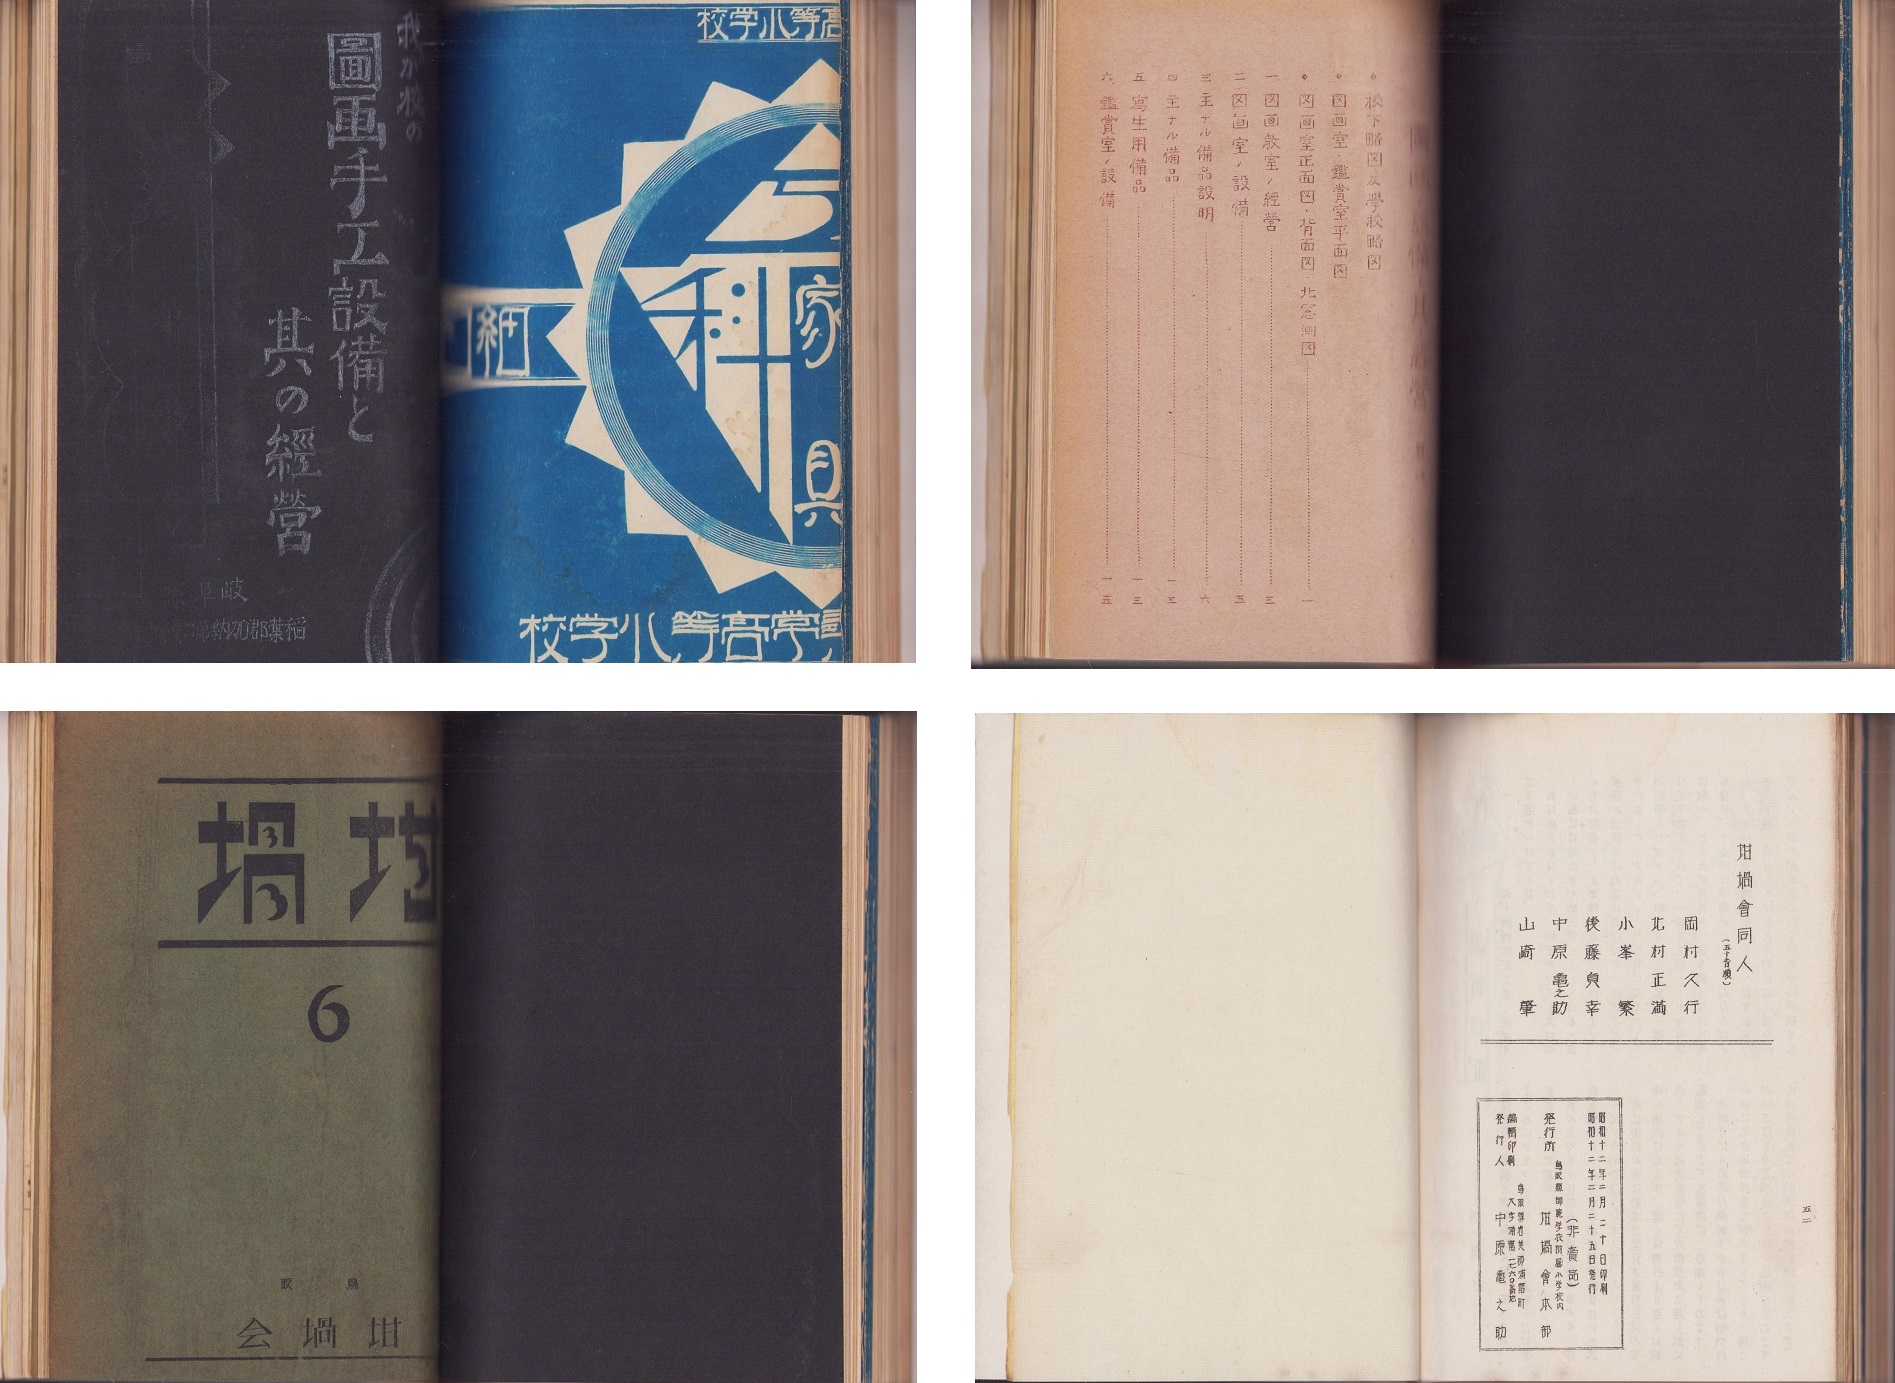 我が校の
圖画手工設備と
其の經營
岐阜縣
稲葉郡加納第
高等小学校
家具
科
細
尋常高等小学校
◦校下略図及學校略図
◦図画室・鑑賞室平面図
◦図画室正面図・背面図・北窓側図 一
一 図画教室ノ經営 三
二 図画室ノ設備 五
三 主ナル備品説明 六
四 主ナル備品 一三
五 寫生用備品 一三
六 鑑賞室ノ設備 一五
坩堝
6
鳥取
坩堝会
坩堝會同人
(五十音順)
岡村久行
北村正満
小峯繁
後藤貞幸
中原亀之助
山崎肇
昭和十二年二月二十日印刷
昭和十二年二月二十五日発行
(非賣品)
鳥取縣師範学校附属小学校内
発行所 坩堝會本部
編輯印刷
発行人 中原亀之助
五二